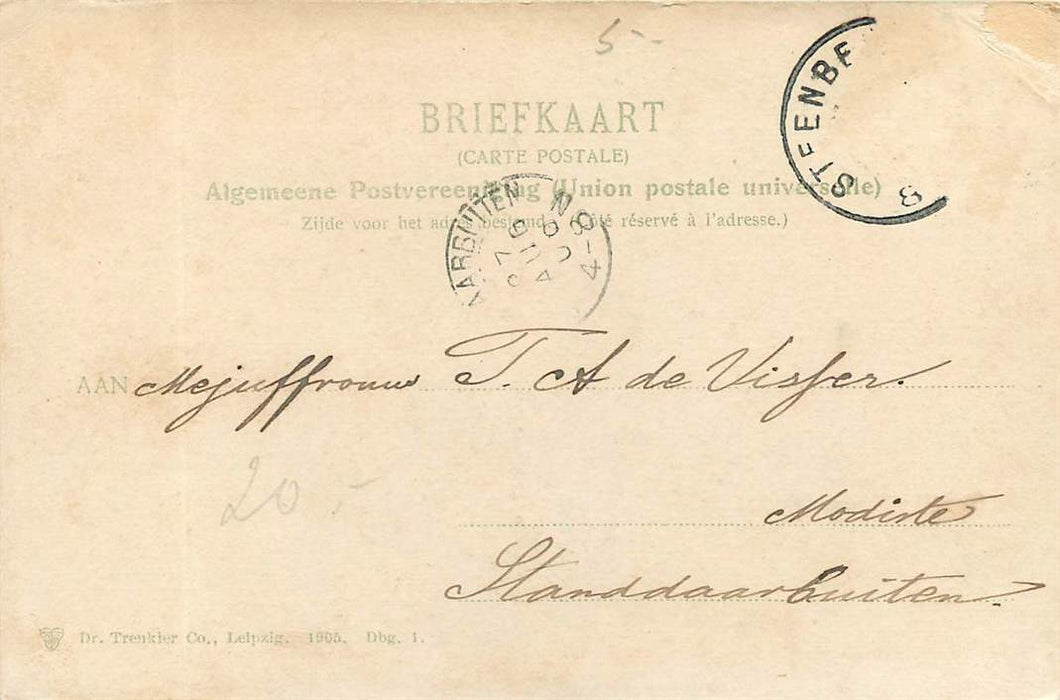 5-
STEENBE
8
BRIEFKAART
(CARTE POSTALE)
Algemeene Postvereeniging (Union postale universelle)
Zijde voor het adres bestemd. (Côté réservé à l'adresse.)
AARBUITEN
4-8
AAN Mejuffrouw T. A de Visser.
20.-
Modiste
Standdaarbuiten.
Dr. Trenkler Co., Leipzig. 1905. Dbg. 1.